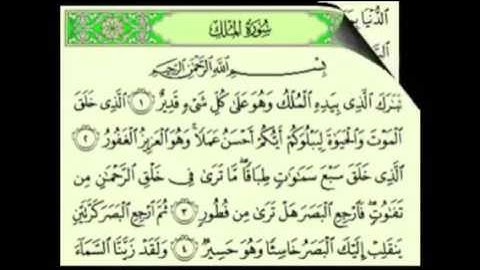 الدُّنْيَا
سُورَةُ الْمُلْكِ
بِسْمِ اللَّهِ الرَّحْمَٰنِ الرَّحِيمِ
تَبَٰرَكَ الَّذِى بِيَدِهِ الْمُلْكُ وَهُوَ عَلَىٰ كُلِّ شَىْءٍ قَدِيرٌ ١ الَّذِى خَلَقَ
الْمَوْتَ وَالْحَيَوٰةَ لِيَبْلُوَكُمْ أَيُّكُمْ أَحْسَنُ عَمَلًا وَهُوَ الْعَزِيزُ الْغَفُورُ ٢
الَّذِى خَلَقَ سَبْعَ سَمَٰوَٰتٍ طِبَاقًا مَّا تَرَىٰ فِى خَلْقِ الرَّحْمَٰنِ مِن
تَفَٰوُتٍ فَارْجِعِ الْبَصَرَ هَلْ تَرَىٰ مِن فُطُورٍ ٣ ثُمَّ ارْجِعِ الْبَصَرَ كَرَّتَيْنِ
يَنقَلِبْ إِلَيْكَ الْبَصَرُ خَاسِئًا وَهُوَ حَسِيرٌ ٤ وَلَقَدْ زَيَّنَّا السَّمَآءَ